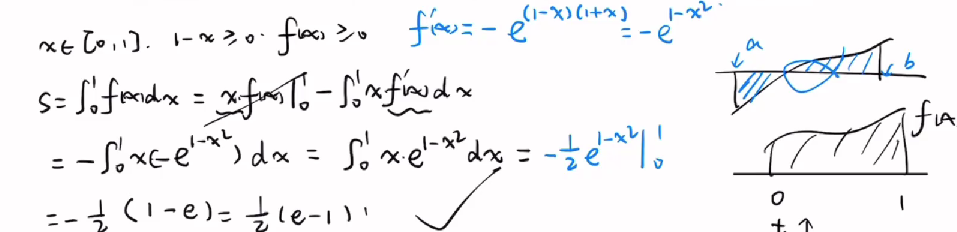 x∈[0,1]. 1-x≥0. f(x)≥0 f'(x)=-e^{(1-x)(1+x)}=-e^{1-x^2}.
S=∫_0^1 f(x)dx = x·f(x)|_0^1 - ∫_0^1 x f'(x)dx
= -∫_0^1 x(-e^{1-x^2})dx = ∫_0^1 x·e^{1-x^2}dx = -\frac{1}{2}e^{1-x^2}|_0^1
= -\frac{1}{2}(1-e) = \frac{1}{2}(e-1)
a
b
0 1